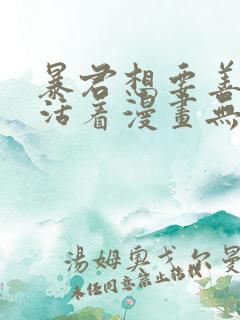 暴君想要善
活着漫畫無
湯姆奧戈尔曼
未任同意禁止轉載